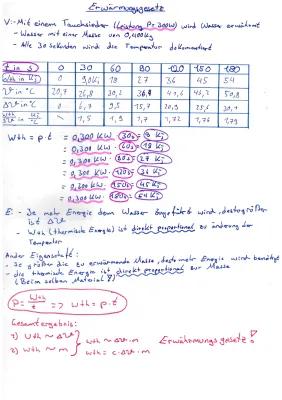 Erwärmungsgesetz
V: - Mit einem Tauchsieder (Leistung P= 300W) wird Wasser erwärmt
- Wasser mit einer Masse von 0,400kg
- Alle 30 Sekunden wird die Temperatur dokumentiert
t in s 0 30 60 90 120 150 180
Wth in kJ 0 9,0kJ 18 27 36 45 54
ϑ in °C 20,7 26,8 30,2 36,4 41,6 46,2 50,8
Δϑ in °C 0 6,1 9,5 15,7 20,9 25,5 30,1
Wth/Δϑ in kJ/°C 1,5 1,9 1,7 1,72 1,76 1,79
Wth = p · t = 0,300 KW · 30s = 9 KJ
= 0,300 KW · 60s = 18 KJ
= 0,300 KW · 90s = 27 KJ
= 0,300 KW · 120s = 36 KJ
= 0,300 KW · 150s = 45 KJ
= 0,300 KW · 180s = 54 KJ
E: - Je mehr Energie dem Wasser zugeführt wird, desto größer
ist Δϑ
- Wth (thermische Energie) ist direkt proportional zu änderung der
Temperatur
Ander Eigenschaft:
- Je größer die zu erwärmende Masse, desto mehr Energie wird benötigt
- die thermische Energie ist direkt proportional zur Masse
(Beim selben Material!)
P = Wth/t => Wth = p · t
Gesamtergebnis:
1) Wth ~ Δϑ
2) Wth ~ m
Wth ~ Δϑ · m
Wth = c · Δϑ · m
Erwärmungsgesetz!